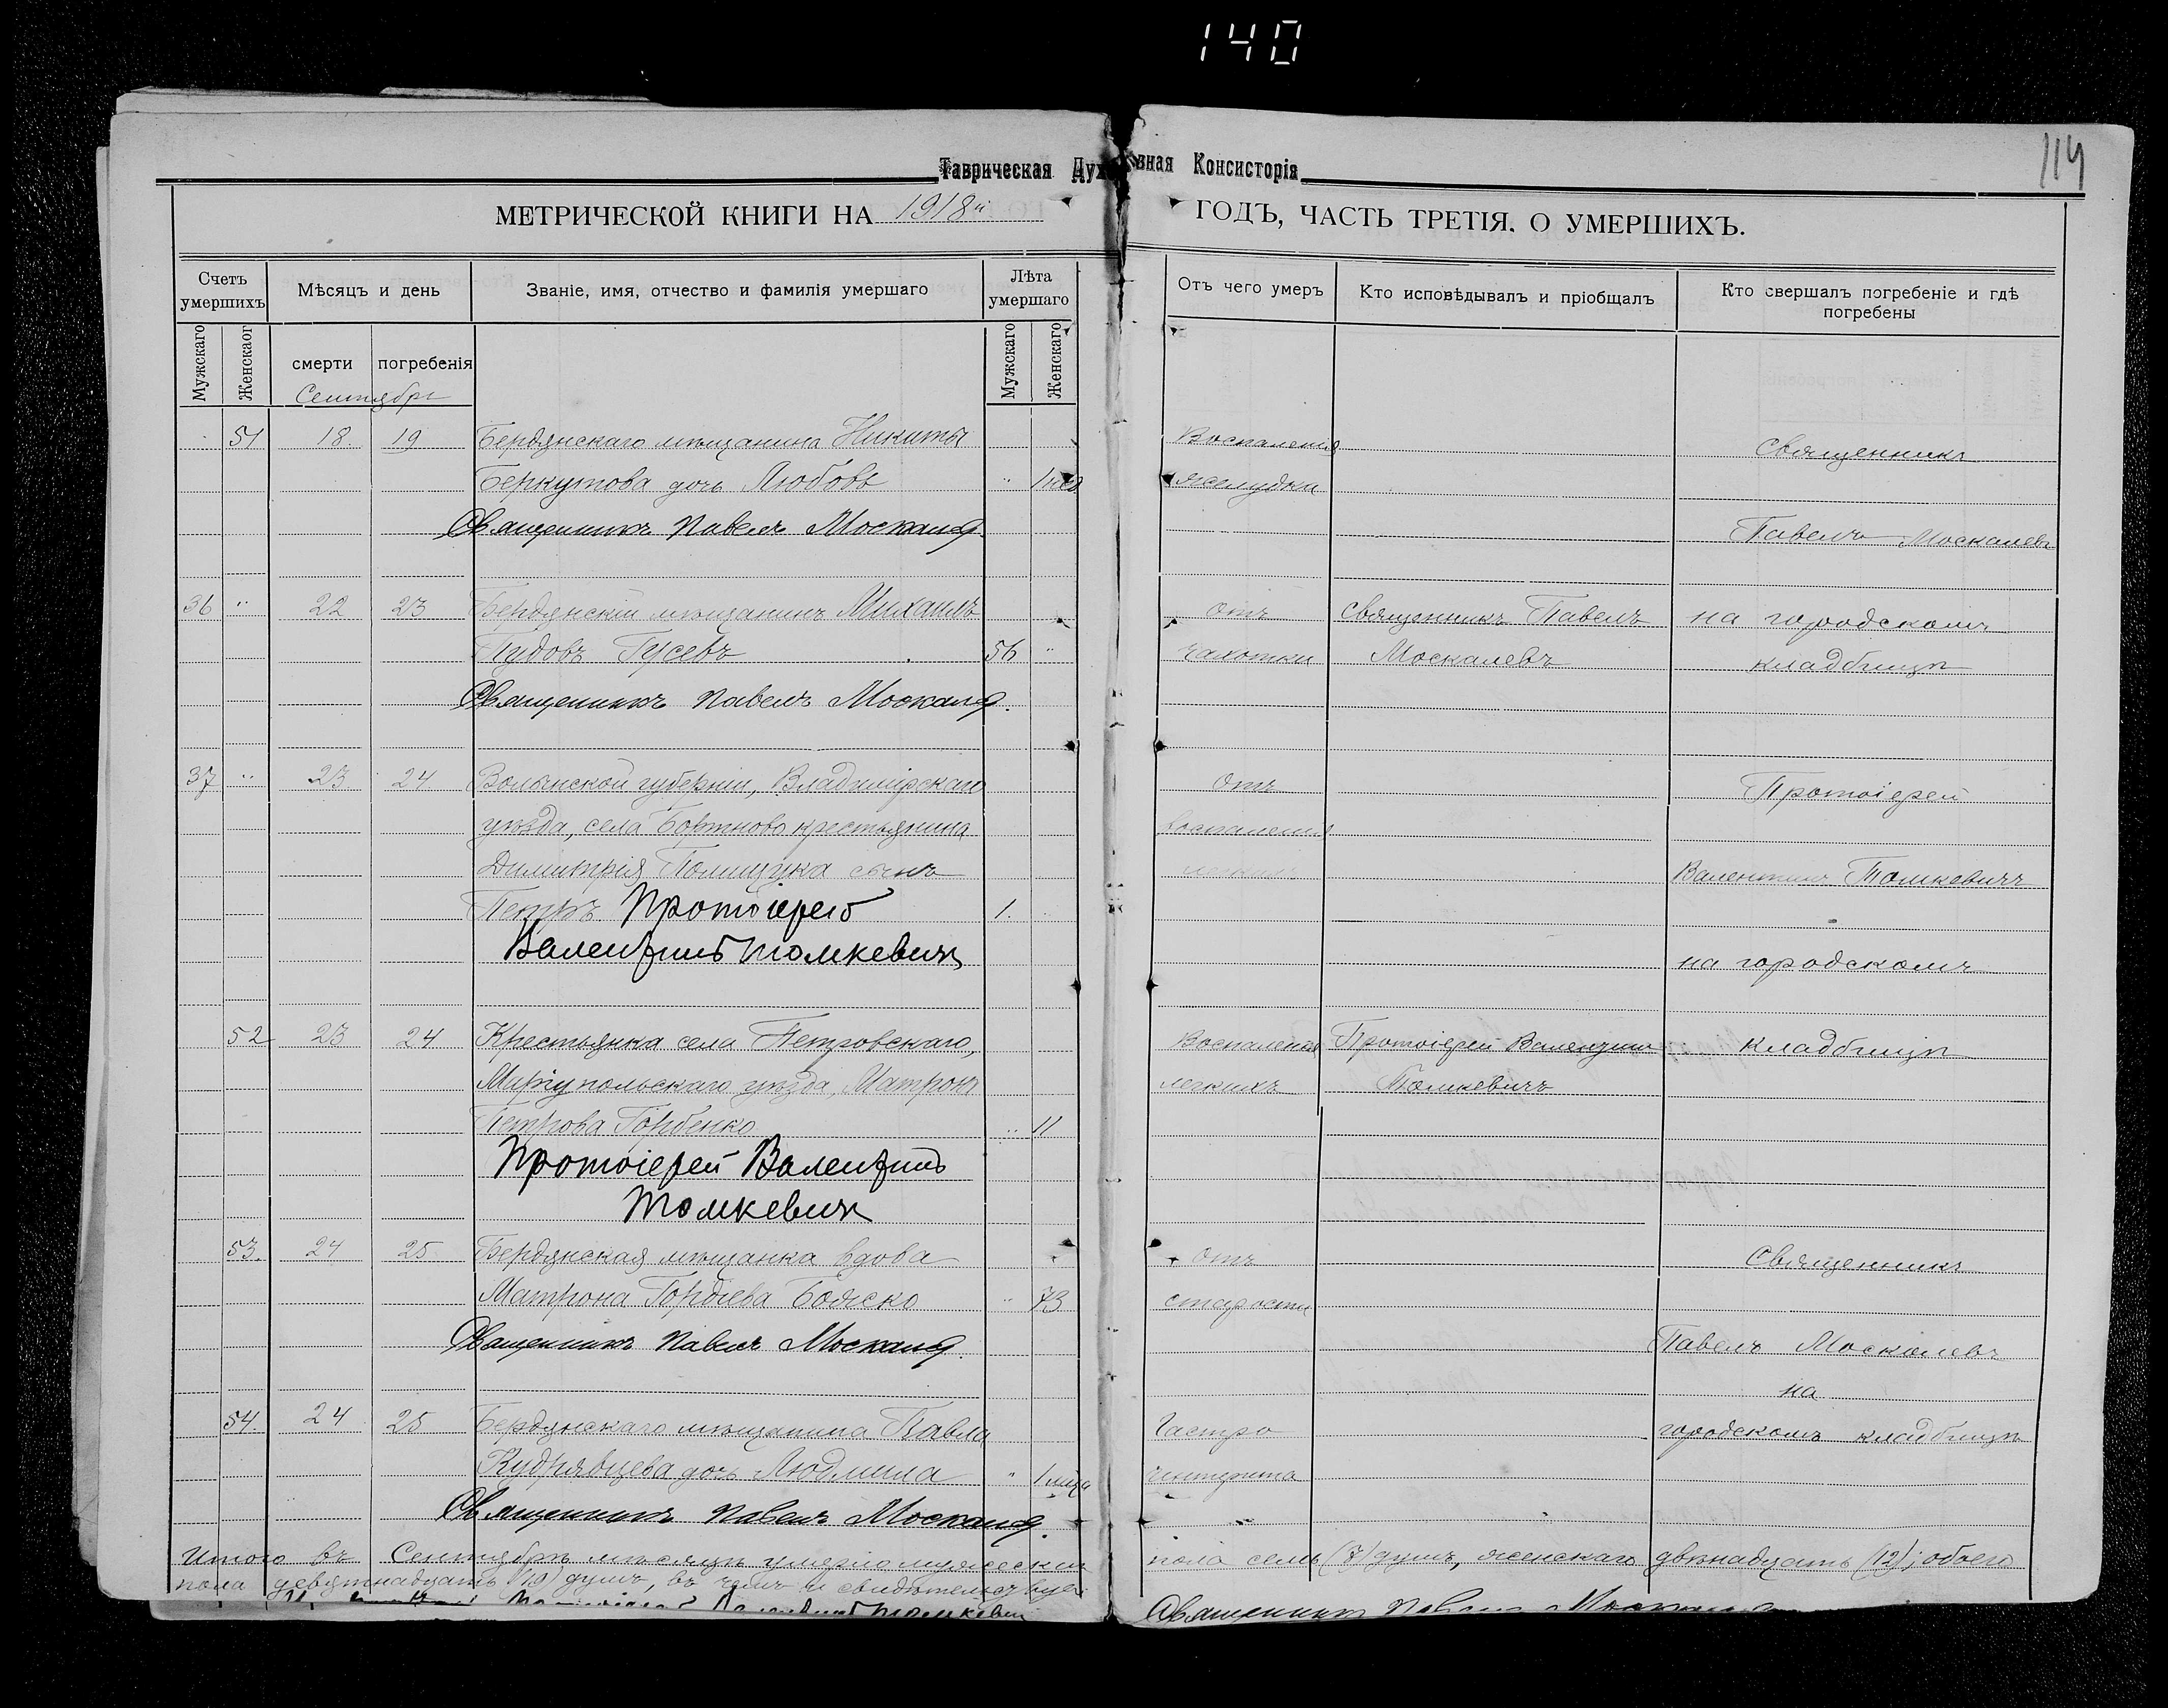 140
114
Таврическая Духовная Консисторія
МЕТРИЧЕСКОЙ КНИГИ НА 1918й ГОДЪ, ЧАСТЬ ТРЕТІЯ. О УМЕРШИХЪ.
Счетъ умершихъ
Мѣсяцъ и день
Званіе, имя, отчество и фамилія умершаго
Лѣта умершаго
Отъ чего умеръ
Кто исповѣдывалъ и пріобщалъ
Кто свершалъ погребеніе и гдѣ погребены
Мужскаго
Женскаог
смерти
погребенія
Мужскаго
Женскаго
Сентябрь
51 18 19 Бердянскаго мѣщанина Никиты Воспаленія Священникъ
Беркутова дочь Любовь " желудка
Священникъ Павелъ Москалев Павелъ Москалевъ
36 " 22 23 Бердянскій мѣщанинъ Михаилъ Отъ Священникъ Павелъ на городскомъ
Пудовъ Гусевъ 56 " чахотки Москалевъ кладбищѣ
Священникъ Павелъ Москалев
37 " 23 24 Волынской губерніи, Владимірскаго Отъ Протоіерей
уѣзда, села Бортново крестьянина воспаленія
Димитрія Полищука сынъ легкихъ Валентинъ Томкевичъ
Петръ Протоіерей 1
Валентинъ Томкевич на городскомъ
52 23 24 Крестьянка села Петровскаго, Воспаленія Протоіерей Валентинъ кладбищѣ
Маріупольскаго уѣзда, Матрона легкихъ Томкевичъ
Петрова Горбенко " 11
Протоіерей Валентинъ
Томкевич
53 24 25 Бердянская мѣщанка вдова отъ Священникъ
Матрона Гордіева Божско " 73 старости
Священникъ Павелъ Москалев Павелъ Москалевъ
на
54. 24 25 Бердянскаго мѣщанина Павла Гастро городскомъ кладбищѣ
Кудрявцева дочь Людмила "
Священникъ Павелъ Москалев
Итого въ Сентябрѣ мѣсяцѣ умерло мужеска пола семь (7) душъ, женскаго двѣнадцать (12); обоего
пола девятнадцать (19) душъ, въ чемъ и свидѣтельствуемъ
Протоіерей Валентинъ Томкевич Священникъ Павелъ Москалев